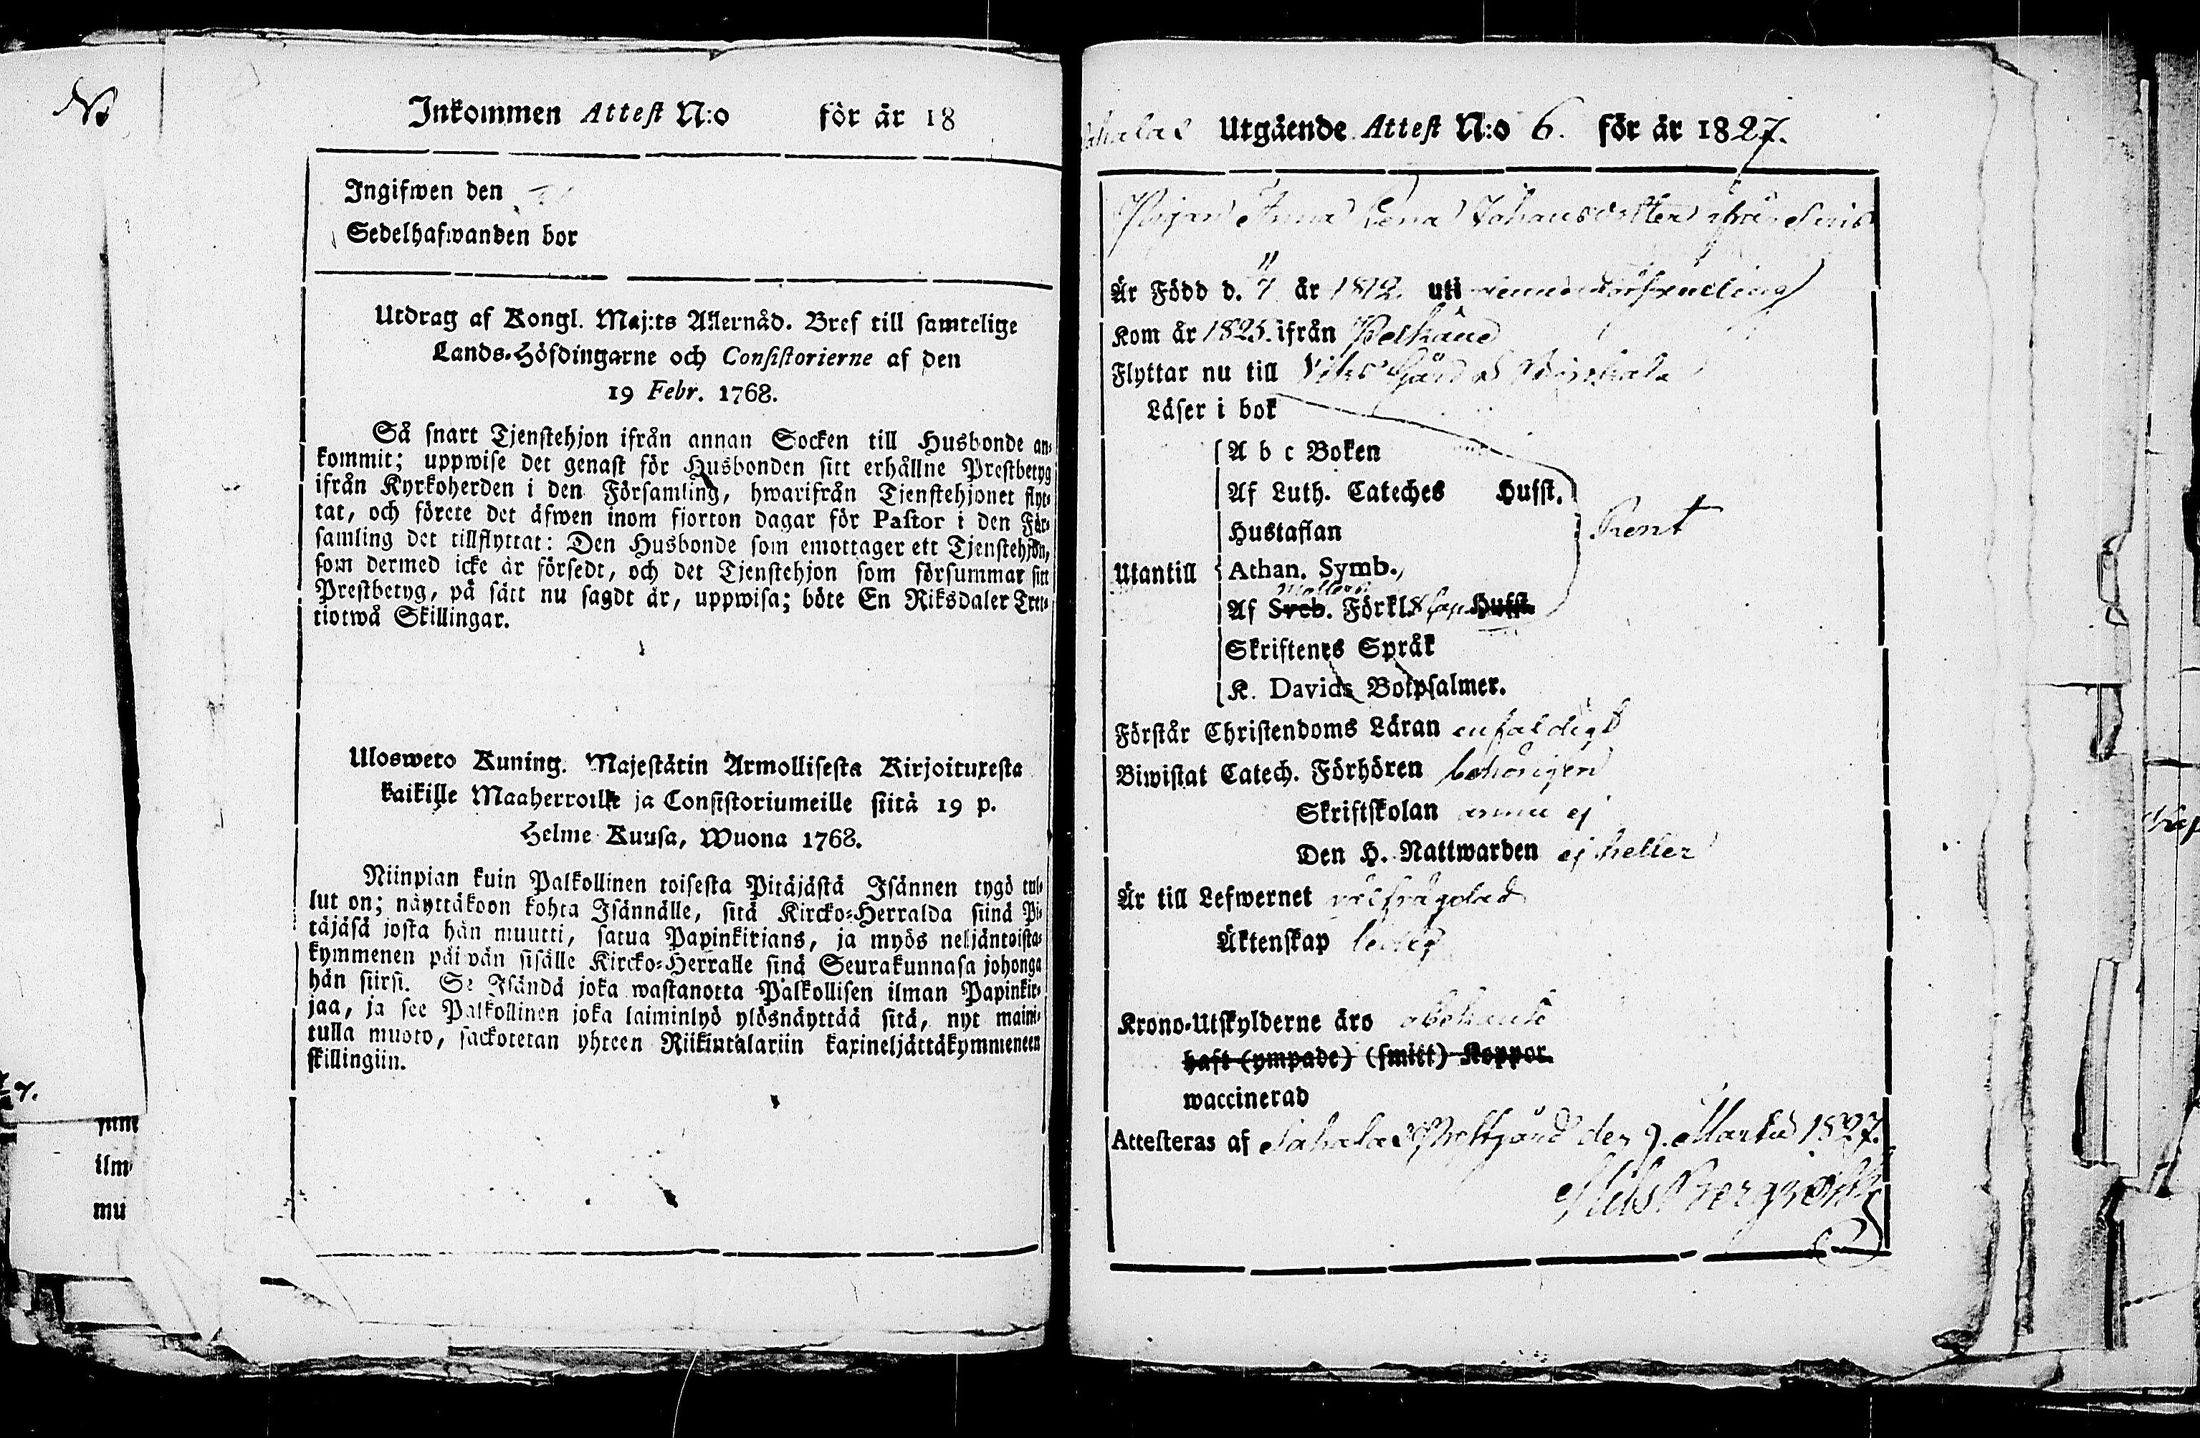 No
Inkommen Attest N:o för år 18
Ingifwen den
Sedelhafwanden bor
Utdrag af Kongl. Maj:ts Allernåd. Bref till samtelige
Lands-Höfdingarne och Consistorierne af den
19 Febr. 1768.
Så snart Tjenstehjon ifrån annan Socken till Husbonde an-
kommit; uppwise det genast för Husbonden sitt erhållne Prestbetyg
ifrån Kyrkoherden i den Församling, hwarifrån Tjenstehjonet flyt-
tat, och förete det äfwen inom fjorton dagar för Pastor i den För-
samling det tillflyttat: Den Husbonde som emottager ett Tjenstehjon,
som dermed icke är försedt, och det Tjenstehjon som försummar sitt
Prestbetyg, på sätt nu sagdt är, uppwisa; böte En Riksdaler Tret-
tiotwå Skillingar.
Ulosweto Kuning. Majestätin Armollisesta Kirjoituxesta
kaikille Maaherroille ja Consistoriumeille siitä 19 p.
Helme Kuusa, Wuona 1768.
Niinpian kuin Palkollinen toisesta Pitäjästä Isännen tygö tul-
lut on; näyttäkoon kohta Isännälle, sitä Kircko-Herralda siinä Pi-
täjäsä josta hän muutti, satua Papinkirjans, ja myös neljäntoista-
kymmenen päiwän sisälle Kircko-Herralle sinä Seurakunnasa johonga
hän siirsi. Se Isändä joka wastanotta Palkollisen ilman Papinkir-
jaa, ja see Palkollinen joka laiminlyö ylösnäyttää sitä, nyt maini-
tulla muoto, sackotetan yhteen Riikintalariin kaxineljättäkymmeneen
skillingiin.
7.
ilm
mu
Utgående Attest N:o 6. för år 1827.
Pigan Anna Lena Johansdotter ifrån
Är Född d. 11/7 år 1812. uti denna Församling
Kom år 1825. ifrån Pelkäne
Flyttar nu till
Läser i bok
A b c Boken
Af Luth. Cateches Hufst.
Hustaflan Rent
Utantill Athan. Symb.
Af Sveb. Förkl. Hufst.
Skriftenes Språk
K. Davids Botpsalmer.
Förstår Christendoms Läran enfaldigt
Biwistat Catech. Förhören behörigen
Skriftskolan ännu ej
Den H. Nattwarden ej heller
Är till Lefwernet välfrägdad
Äktenskap ledig
Krono-Utskylderne äro obetalde
haft (ympade) (smitt) Koppor.
waccinerad
Attesteras af Sahalax Prestgård den 9. Martii 1827.